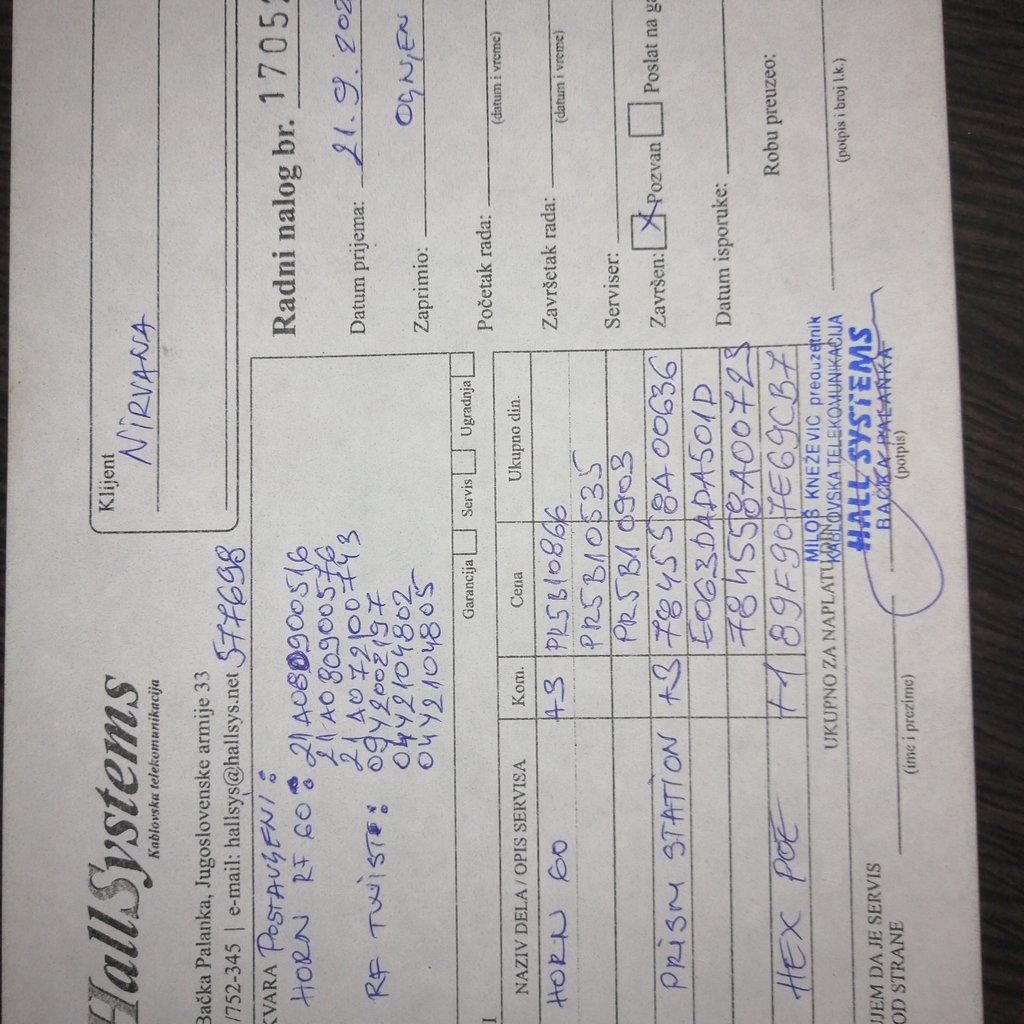 HallSystems
Kablovska telekomunikacija
Bačka Palanka, Jugoslovenske armije 33
/752-345 | e-mail: hallsys@hallsys.net 577698
Klijent
NIRVANA
KVARA POSTAVLJENI:
HORN RF 60: 21A080900516
21A080900576
21A072100743
RF TWISTE: 0942002197
0442104802
0442104805
Garancija Servis Ugradnja
Radni nalog br. 1705
Datum prijema: 21.9.202
Zaprimio: OGNJEN
Početak rada:
(datum i vreme)
Završetak rada:
(datum i vreme)
Serviser:
Završen: X Pozvan Poslat na
Datum isporuke:
Robu preuzeo:
(potpis i broj l.k.)
NAZIV DELA / OPIS SERVISA Kom. Cena Ukupno din.
HORN 60 A3 PR5B10866
PR5B10535
PR5B10903
PRISM STATION A3 784558A00636
E063DADA501D
784558A00723
HEX POE +1 89F907E69CB7
UKUPNO ZA NAPLATU DIN
MILOŠ KNEŽEVIĆ preduzetnik
KABLOVSKA TELEKOMUNIKACIJA
HALL SYSTEMS
BAČKA PALANKA
(potpis)
(ime i prezime)
JEM DA JE SERVIS
OD STRANE